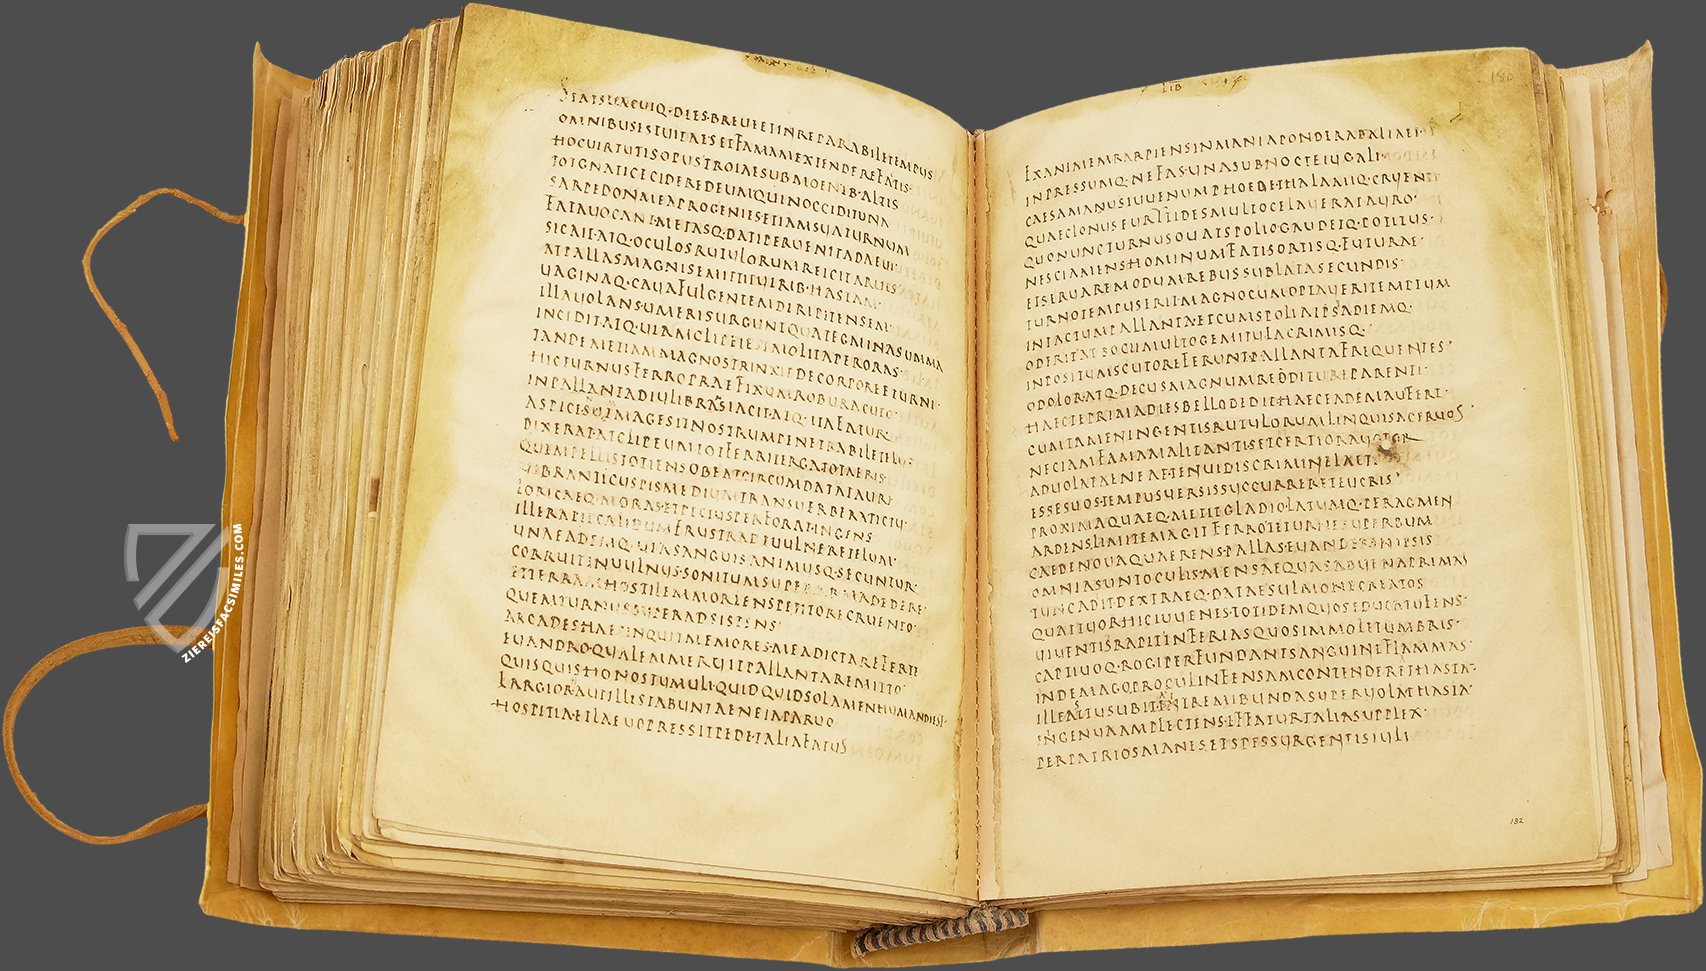 STATSUACUIQ·DIES·BREUEETINREPARABILETEMPUS
OMNIBUSESTUITAESETFAMAMEXTENDEREFATIS·
HOCUIRTUTISOPUSTROIAESUBMOENIB·ALTIS
TOTGNATICECIDEREDEUMQUINOCCIDITUNA
SARPEDONMEAPROGENIESETIAMSUATURNUM
FATAUOCANT·METASQ·DATIPERUENITADAEUI
SICAIT·ATQ·OCULOSRUTULORUMREICITARUIS
ATPALLASMAGNISEMITTITUIRIB·HASTAM·
UAGINAQ·CAUAFULGENTEMDIRIPITENSEM·
ILLAUOLANS·UMERISURGUNTQUATEGMINASUMMA
INCIDITATQ·UIAMCLIPEIESTMOLITAPERORAS·
TANDEMETIAMMAGNOSTRINXITDECORPORETURNI·
HICTURNUSFERROPRAEFIXUMROBURACUTO·
INPALLANTADIULIBRANSIACIT·ATQ·ITAFATUR·
ASPICESIMAGESITNOSTRUMPENETRABILETELUM·
DIXERAT·ATCLIPEUMTOTFERRITERGATOTAERIS·
QUEMPELLISTOTIENSOBEATCIRCUMDATATAURI·
UIBRANTICUSPISMEDIUMTRANSUERBERATICTU·
LORICAEQ·MORAS·ETPECTUSPERFORATINGENS
ILLERAPITCALIDUMFRUSTRADEUULNERETELUM·
UNAEADEMQ·UIASANGUISANIMUSQ·SECUNTUR·
CORRUITINUULNUS·SONITUMSUPERARMADEDERE·
ETTERRAMHOSTILEMMORIENSPETITORECRUENTO·
QUEMTURNUSSUPERADSISTENS·
ARCADESHAECINQUITMEMORES·MEADICTAREFERTE
EUANDROQUALEMMERUITPALLANTAREMITTO·
QUISQUISHONOSTUMULI·QUIDQUIDSOLAMENHUMANDIEST·
LARGIOR·AUTILLISTABUNTAENEIAPARUO
HOSPITIA·ETLAEUOPRESSITPEDE·TALIAFATUS
LIB
180
EXANIMEMRAPIENSINMANIAPONDERABALTEI·
INPRESSUMQ·NEFAS·UNASUBNOCTEIUGALI·
CAESAMANUSIUUENUMFOEDETHALAMIQ·CRUENTI
QUAECLONUSEURYTIDESMULTOCELAUERATAURO·
QUONUNCTURNUSOUATSPOLIOGAUDETQ·POTITUS·
NESCIAMENSHOMINUMFATISORTISQ·FUTURAE·
ETSERUAREMODUMREBUSSUBLATASECUNDIS·
TURNOTEMPUSERIT·MAGNOCUMOPTAUERITEMPTUM
INTACTUMPALLANTA·ETCUMSPOLIAIPSADIEMQ·
ODERIT·ATSOCIIMULTOGEMITULACRIMISQ·
INPOSITUMSCUTOREFERUNTPALLANTAFREQUENTES·
ODOLOR·ATQ·DECUSMAGNUMREDDITUREPARENTI·
HAECTEPRIMADIESBELLODEDITHAECEADEMAUFERT·
CUMTAMENINGENTISRUTULORUMLINQUISACERUOS·
NECIAMFAMAMALITANTISETCERTIORAUCTOR
ADUOLATAENEAETENUIDISCRIMINELETI
ESSESUOS·TEMPUSUERSISSUCCURRERETEUCRIS·
PROXIMAQUAEQ·METITGLADIO·LATUMQ·PERAGMEN
ARDENSLIMITEMAGITFERRO·TETURNESUPERBUM
CAEDENOUAQUAERENS·PALLASEUANDERINIPSIS
OMNIASUNTOCULIS·MENSAEQUASADUENAPRIMAS
TUNCADITDEXTRAEQ·DATAESULMONECREATOS
QUATTUORHICIUUENES·TOTIDEMQUOSEDUCATUFENS·
UIUENTISRAPITINFERIASQUOSIMMOLETUMBRIS·
CAPTIUOQ·ROGIPERFUNDANTSANGUINEFLAMMAS·
INDEMAGOPROCULINFENSAMCONTENDERETHASTA·
ILLEASTUSUBITETTREMIBUNDASUPERUOLATHASTA·
INGENUAAMPLECTENS·EFFATURTALIASUPPLEX·
PERPATRIOSMANES·ETSPESSURGENTISIULI
182
ZIEREISFACSIMILES.COM